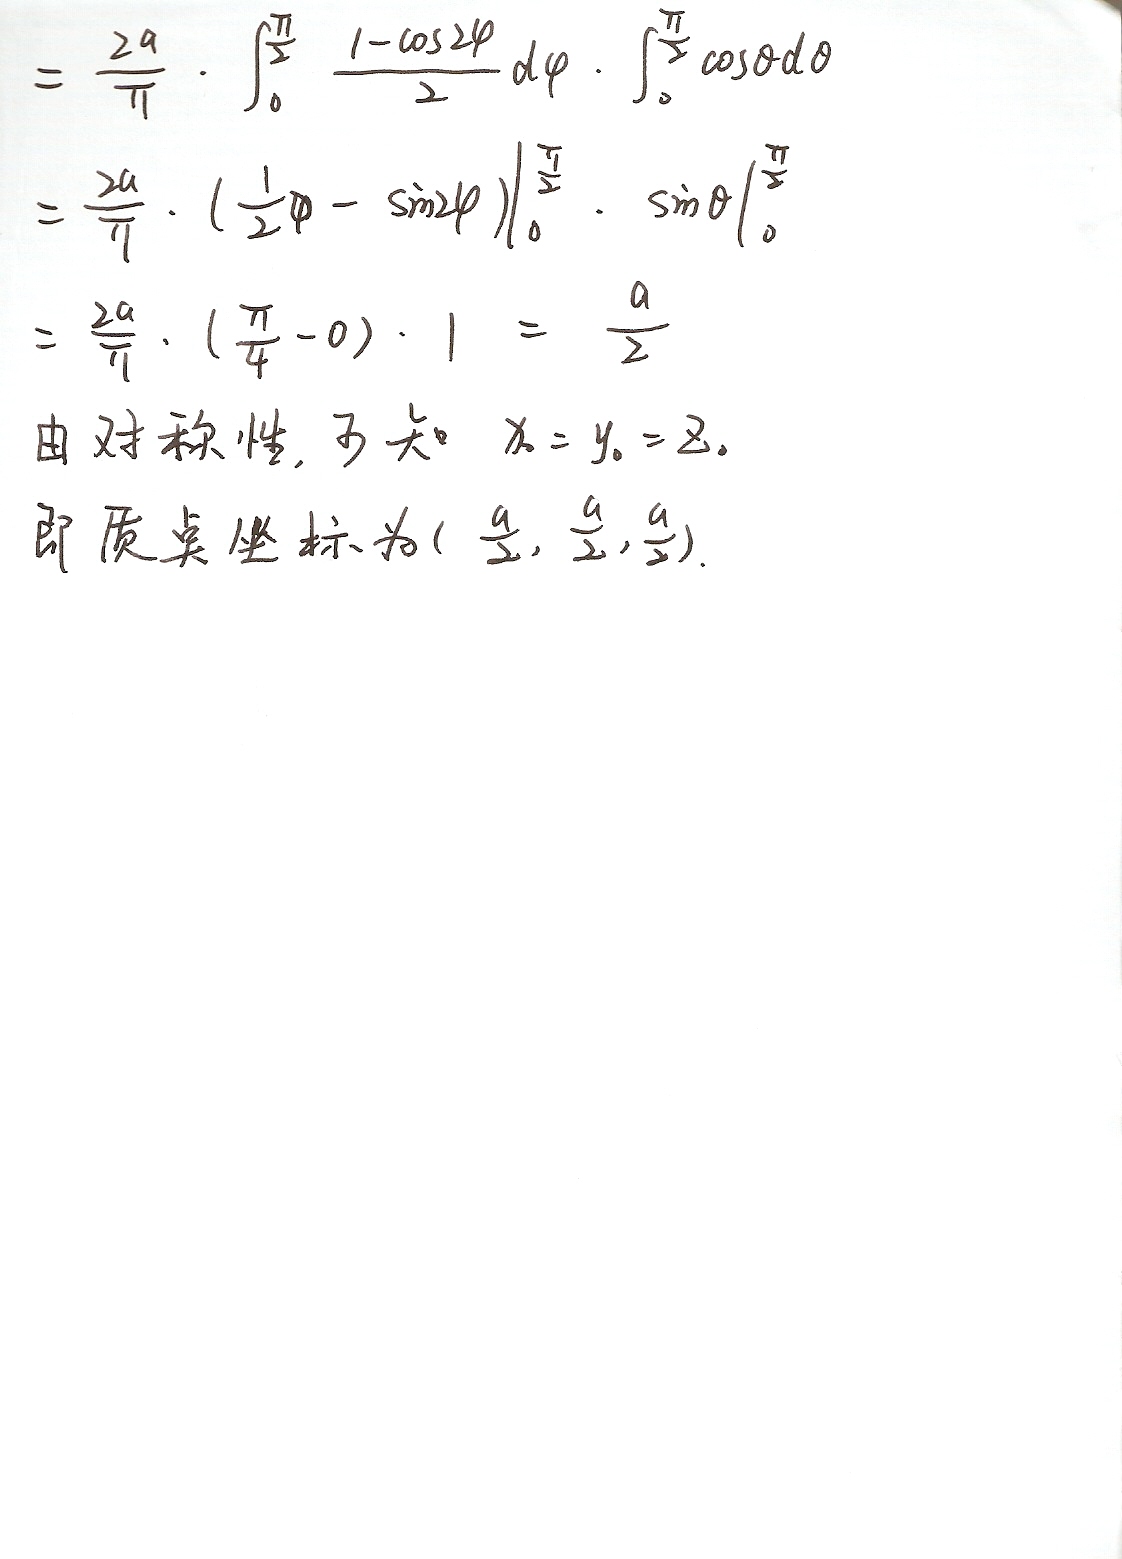 = 2a/π · ∫₀^(π/2) (1-cos2φ)/2 dφ · ∫₀^(π/2) cosθdθ
= 2a/π · (1/2 φ - sin2φ)|₀^(π/2) · sinθ|₀^(π/2)
= 2a/π · (π/4 - 0) · 1 = a/2
由对称性, 可知 x₀ = y₀ = z₀
即质点坐标为(a/2, a/2, a/2).